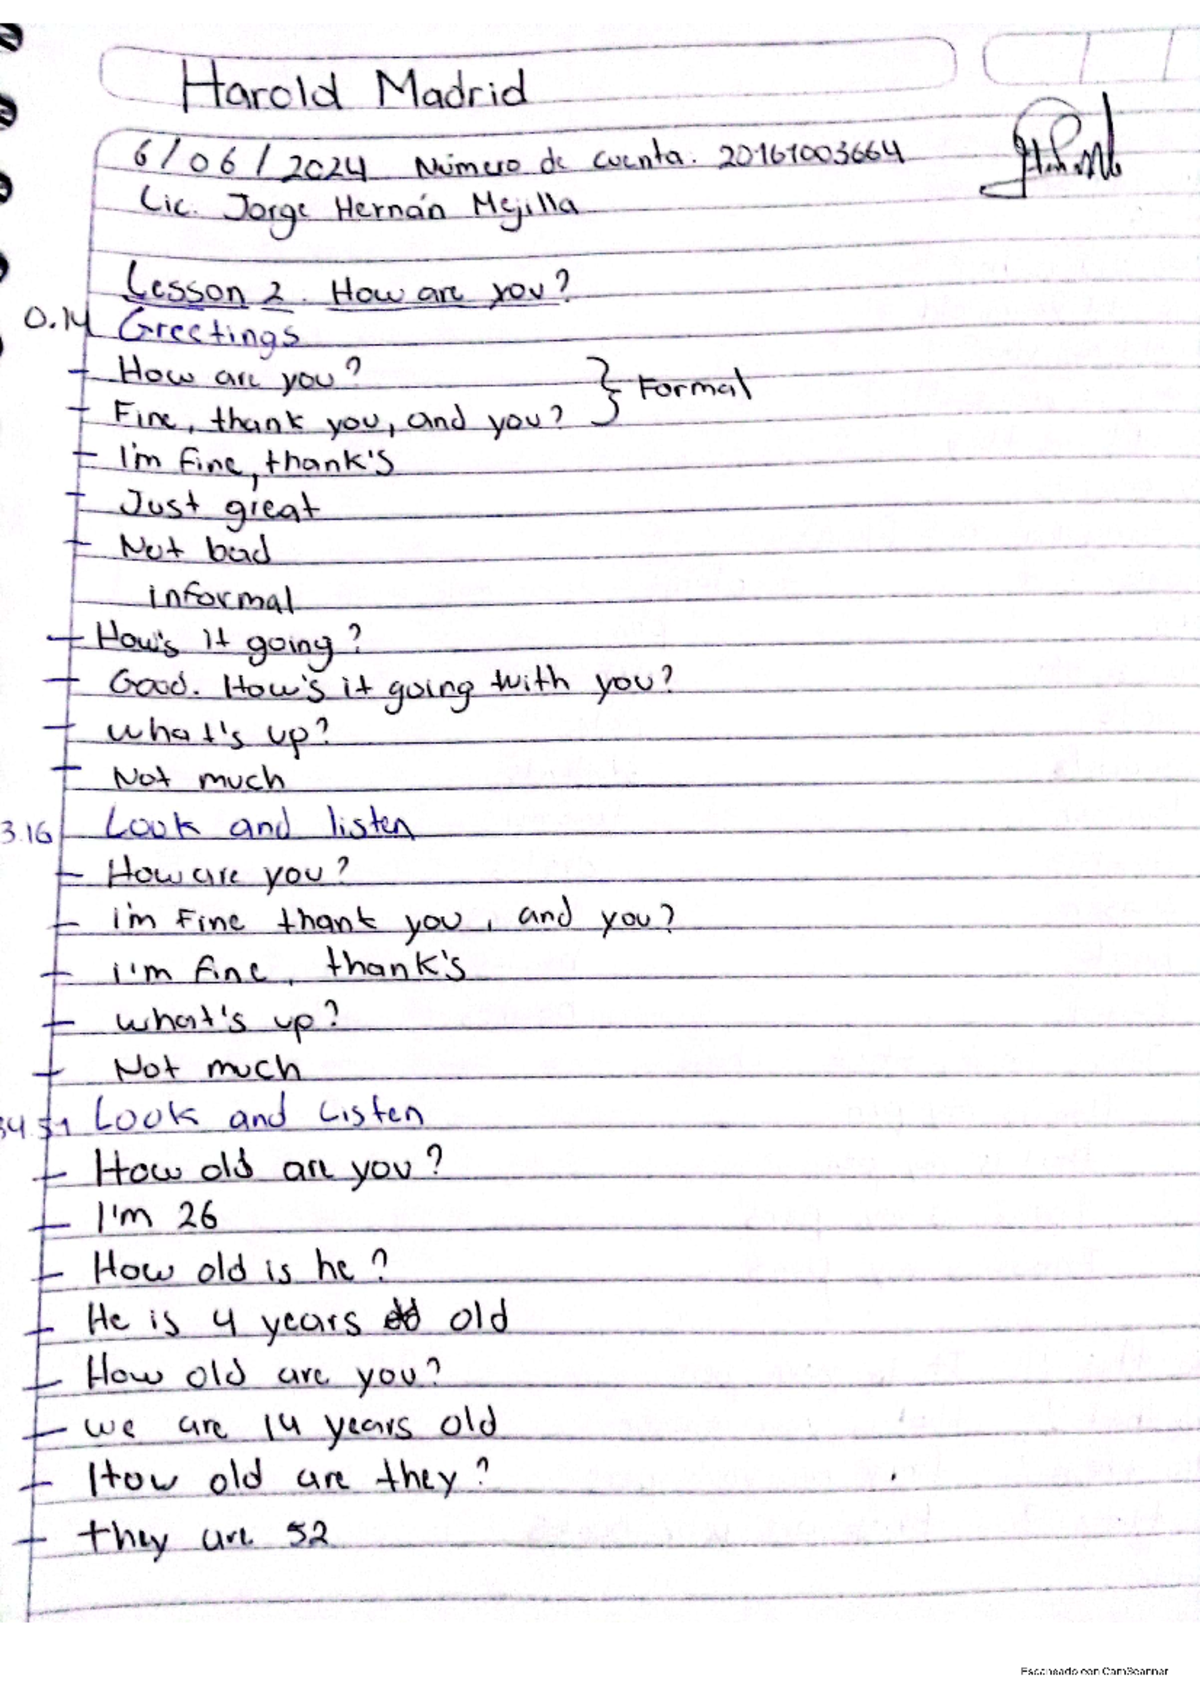 Harold Madrid
6/06/2024 Número de cuenta. 20161003664
Lic. Jorge Hernán Mejilla
Lesson 2. How are you?
0.14 Greetings
- How are you?
- Fine, thank you, and you? } Formal
- I'm fine, thank's
- Just great
- Not bad
informal
- How's it going?
- Good. How's it going with you?
- what's up?
- Not much
3.16 Look and listen
- How are you?
- i'm Fine thank you, and you?
- i'm fine, thank's
- what's up?
- Not much
34.51 Look and Listen
- How old are you?
- I'm 26
- How old is he?
- He is 4 years old
- How old are you?
- we are 14 years old
- How old are they?
- they are 52
Escaneado con CamScanner